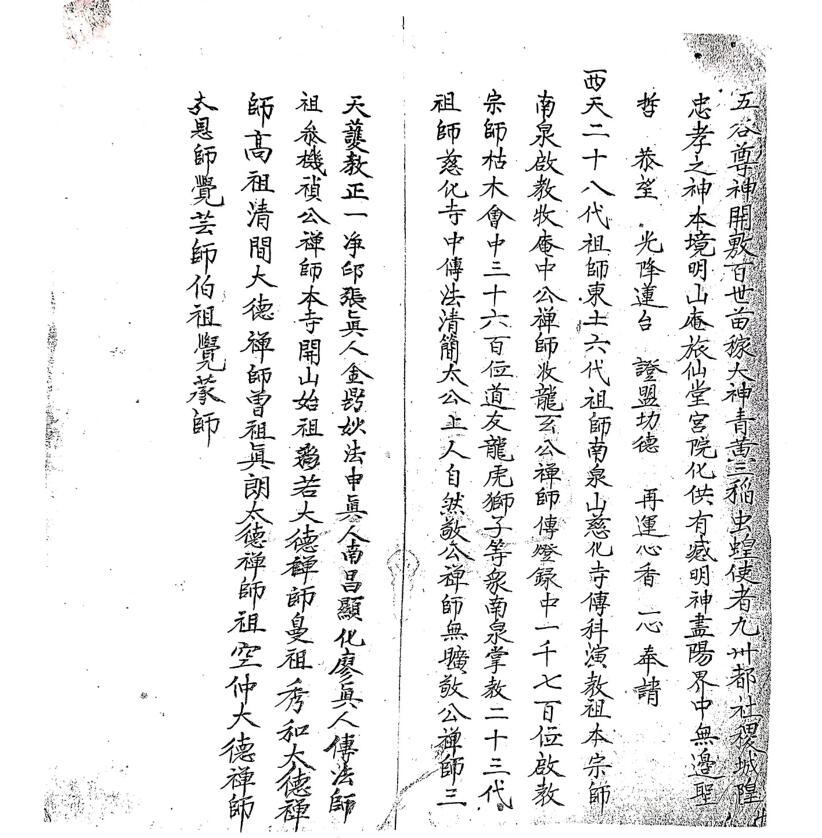 五谷尊神開敷百世苗稼大神青黃三稲虫蝗使者九州都社稷城隍
忠孝之神本境明山庵旅仙堂宮院化供有感明神盡陽界中無邊聖
哲 恭望 光降蓮台 證盟功德 再運心香 一心奉請
西天二十八代祖師東土六代祖師南泉山慈化寺傳科演教祖本宗師
南泉啟教牧庵中公禅師牧龍玄公禅師傳燈録中一千七百位啟教
宗師枯木會中三十六百位道友龍虎獅子等衆南泉掌教二十三代
祖師慈化寺中傳法清簡太公上人自然敬公禅師無曠敬公禅師三
天護教正一净邱張眞人金?妙法申眞人南昌顯化廖眞人傳法師
祖癸機禎公禅師本寺開山始祖若大德禅師曼祖秀和太德禅
師高祖清間大德禅師曽祖眞朗太德禅師祖空仲大德禅師
夲恩師覺芸師伯祖覺蒙師